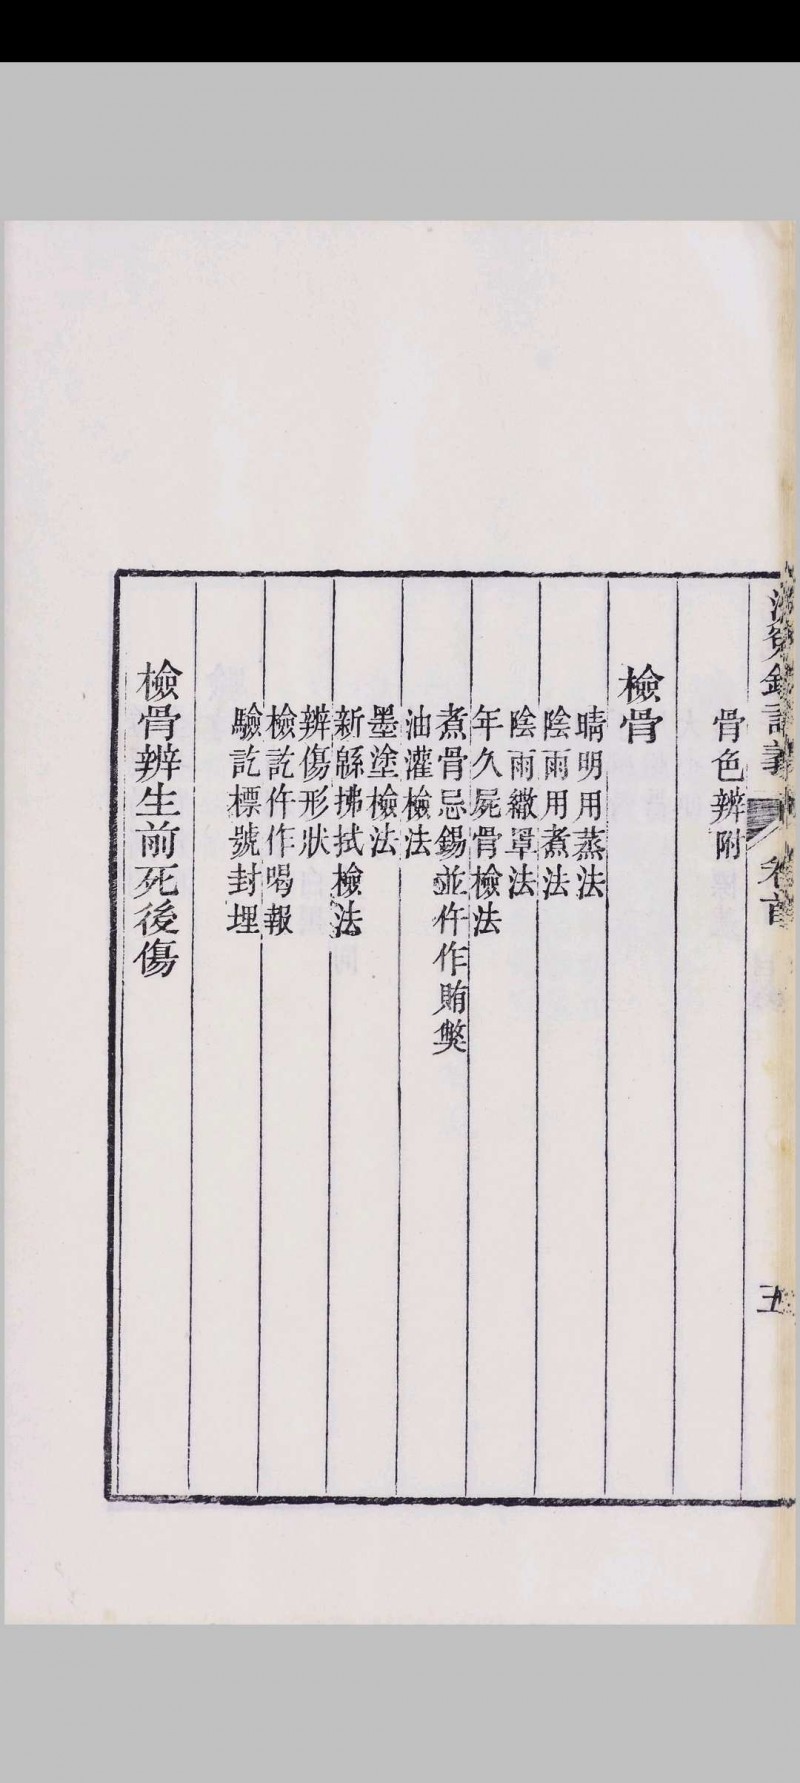 洗冤錄詳義 卷首 五
骨色辨附
檢骨
晴明用蒸法
陰雨用煮法
陰雨繖罩法
年久屍骨檢法
煮骨忌錫並仵作賄獘
油灌檢法
墨塗檢法
新緜拂拭檢法
辨傷形狀
檢訖仵作喝報
驗訖標號封埋
檢骨辨生前死後傷